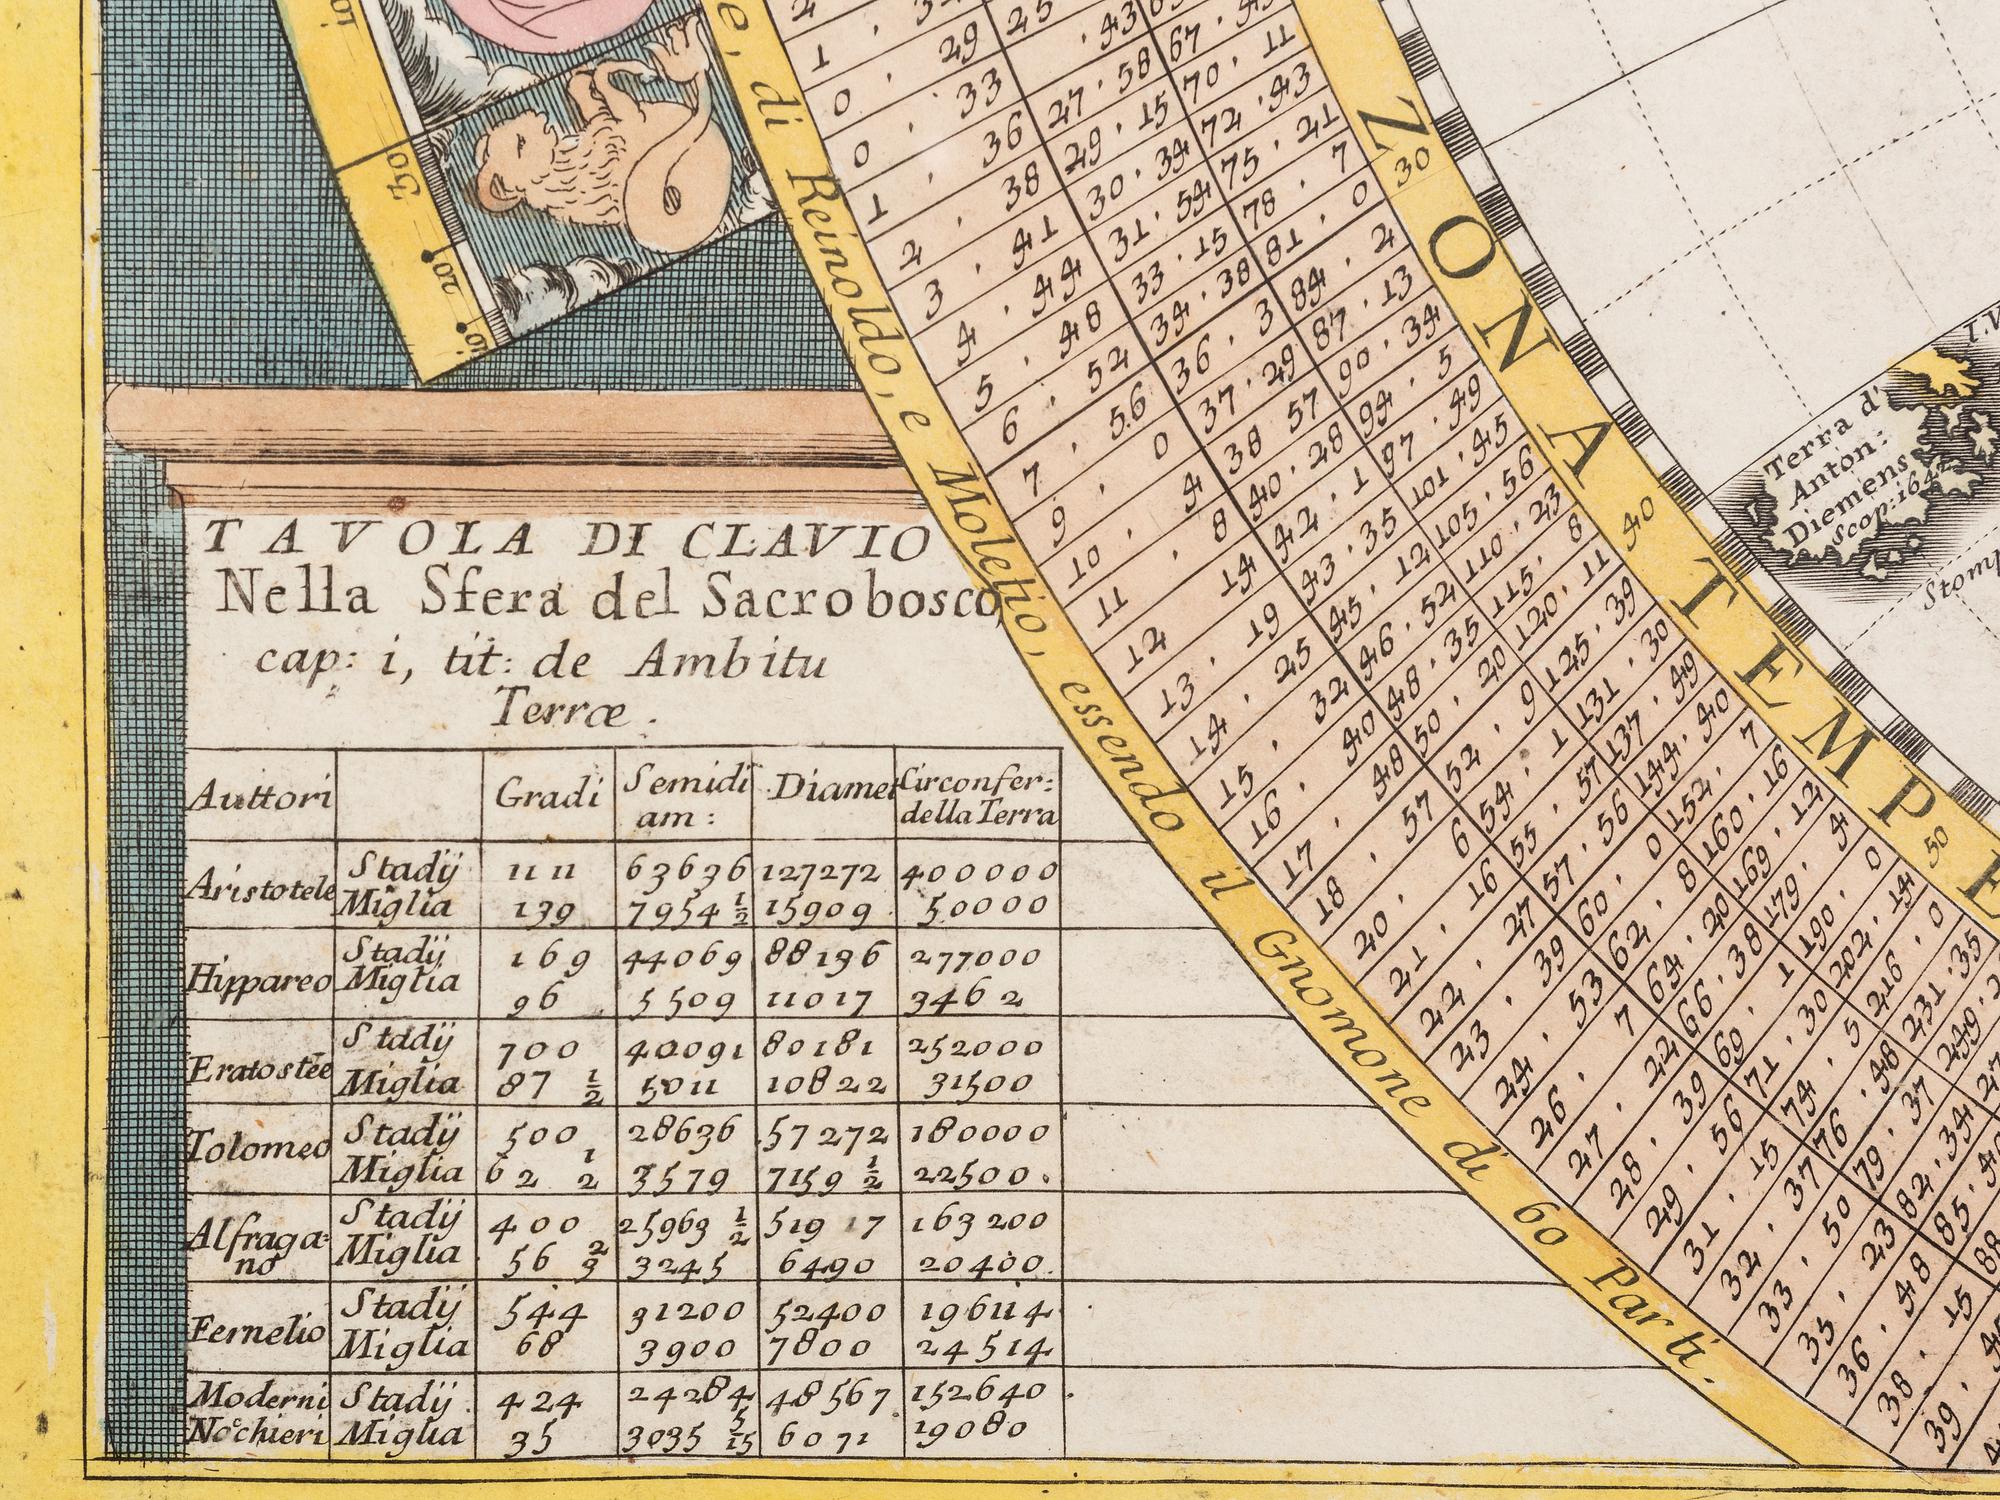 TAVOLA DI CLAVIO
Nella Sfera del Sacrobosco,
cap: i, tit: de Ambitu
Terræ.
Auttori Gradi Semidi Diamet Circonfer:
am: della Terra
Aristotele Stadij 1111 63636 127272 400000
Miglia 139 7954 1/2 15909 50000
Hippareo Stadij 169 44069 88196 277000
Miglia 96 5509 11017 3462
Eratostẽe Stadij 700 40091 80181 252000
Miglia 87 1/2 5011 10822 31500
Tolomeo Stadij 500 28636 57272 180000
Miglia 62 1/2 3579 7159 1/2 22500.
Alfraga= Stadij 400 25963 1/2 519 17 163200
no Miglia 56 2/3 3245 6490 20400.
Fernelio Stadij 544 31200 52400 196114
Miglia 68 3900 7800 24514
Moderni Stadij 424 24284 48567 152640
Nochieri Miglia 35 3035 5/15 6071 19080
e, di Reinoldo, e Moletio, essendo il Gnomone di 60 Parti.
ZONA TEMPE
30
40
50
Terra d'
Anton:
Diemens
Scop:164
Stomp
30
20
10
1 . 29
0 . 33 27 . 58 70 . 11
0 . 36 29 . 15 72 . 43
1 . 38 30 . 34 75 . 21
2 . 41 31 . 54 78 . 7
3 . 44 33 . 15 81 . 0
4 . 48 34 . 38 84 . 2
5 . 52 36 . 3 87 . 13
6 . 56 37 . 29 90 . 34
7 . 0 38 57 94 . 5
9 . 4 40 . 28 97 . 49
10 . 8 42 . 1 101 . 45
11 . 14 43 . 35 105 . 56
12 19 45 . 12 110 . 23
13 . 25 46 . 52 115 . 8
14 . 32 48 . 35 120 . 11
15 . 40 50 . 20 125 . 39
16 . 48 52 . 9 131 . 30
17 . 57 54 . 1 137 . 49
18 . 6 55 . 57 144 . 40
20 . 16 57 . 56 152 . 7
21 . 27 60 . 0 160 . 16
22 . 39 62 . 8 169 . 12
23 . 53 64 . 20 179 . 4
24 . 7 66 . 38 190 . 0
26 . 22 69 . 1 202 . 14
27 . 39 71 . 30 216 . 0
28 . 56 74 . 5 231 . 35
29 . 15 76 . 48
31 . 37 79 . 37
32 . 50 82 . 34
33 . 23
35 . 48
36 . 15
38 .
39 .